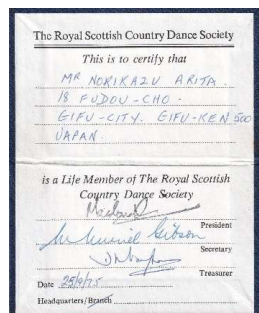 The Royal Scottish Country Dance Society
This is to certify that
MR NORIKAZU ARITA.
18 FUDOU-CHO.
GIFU-CITY. GIFU-KEN 500
JAPAN.
is a Life Member of The Royal Scottish
Country Dance Society
President
Muriel Gibson
Secretary
Treasurer
Date 25/9/75
Headquarters/Branch